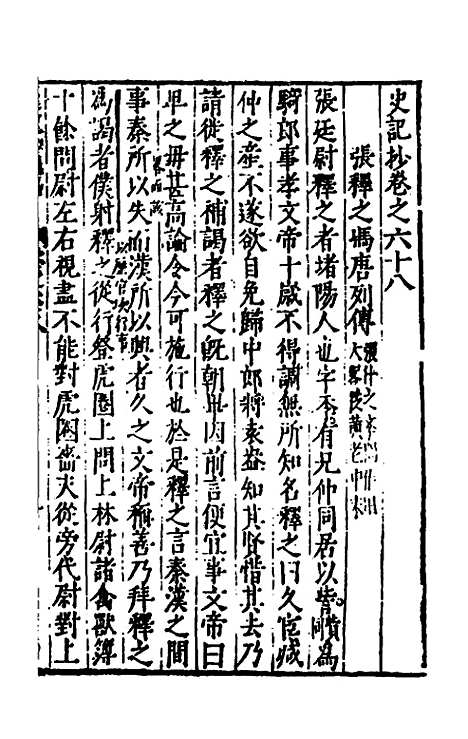 史記抄卷之六十八
張釋之馮唐列傳
大畧從黃老中來
張廷尉釋之者堵陽人也字季有兄仲同居以貲為
騎郎事孝文帝十歲不得調無所知名釋之曰久宦減
仲之產不遂欲自免歸中郎將袁盎知其賢惜其去乃
請徙釋之補謁者釋之旣朝畢因前言便宜事文帝曰
卑之毋甚高論令今可施行也於是釋之言秦漢之間
事秦所以失而漢所以興者久之文帝稱善乃拜釋之
為謁者僕射釋之從行登虎圈上問上林尉諸禽獸簿
十餘問尉左右視盡不能對虎圈嗇夫從旁代尉對上